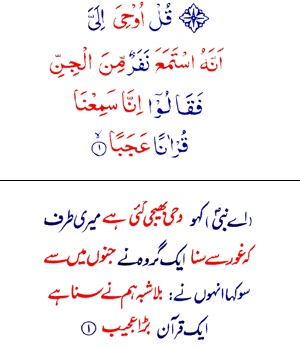 قُلْ اُوْحِىَ اِلَىَّ
اَنَّهُ اسْتَمَعَ نَفَرٌ مِّنَ الْجِنِّ
فَقَالُوْۤا اِنَّا سَمِعْنَا
قُرْاٰنًا عَجَبًا ۙ﴿۱﴾
(اے نبیؐ) کہو وحی بھیجی گئی ہے میری طرف
کہ غور سے سنا ایک گروہ نے جنوں میں سے
سو کہا انہوں نے: بلاشبہ ہم نے سنا ہے
ایک قرآن بڑا عجیب ﴿۱﴾